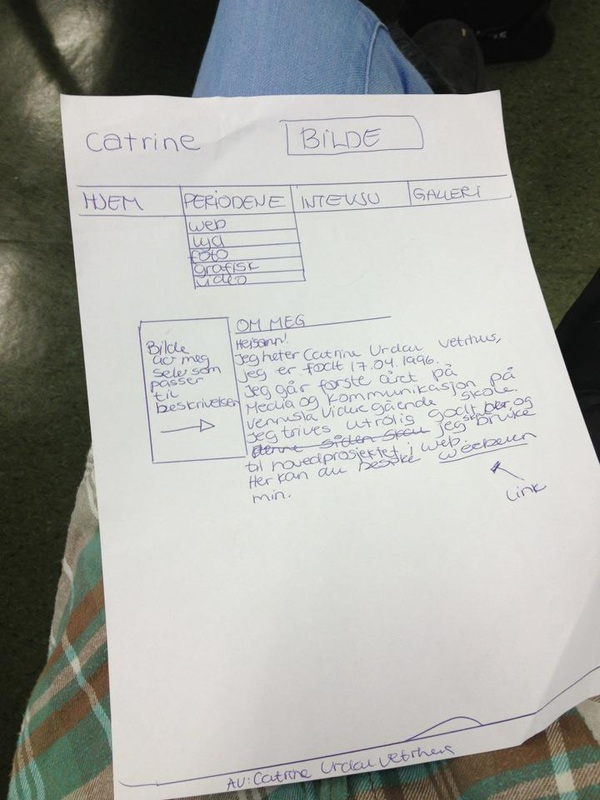 Catrine
BILDE
HJEM PERIODENE INTERVJU GALLERI
web
lyd
foto
grafisk
video
OM MEG
Bilde
av meg
selv som
passer
til
beskrivelsen
Heisann!
Jeg heter Catrine Urdal Vetrhus,
jeg er født 17.04.1996.
Jeg går første året på
Media og kommunikasjon på
Vennesla videregående skole.
Jeg trives utrolig godt der og
denne siden skal jeg bruke
til hovedprosjektet i web.
Her kan du besøke weebeleen
min.
Link
AV: Catrine Urdal Vetrhus